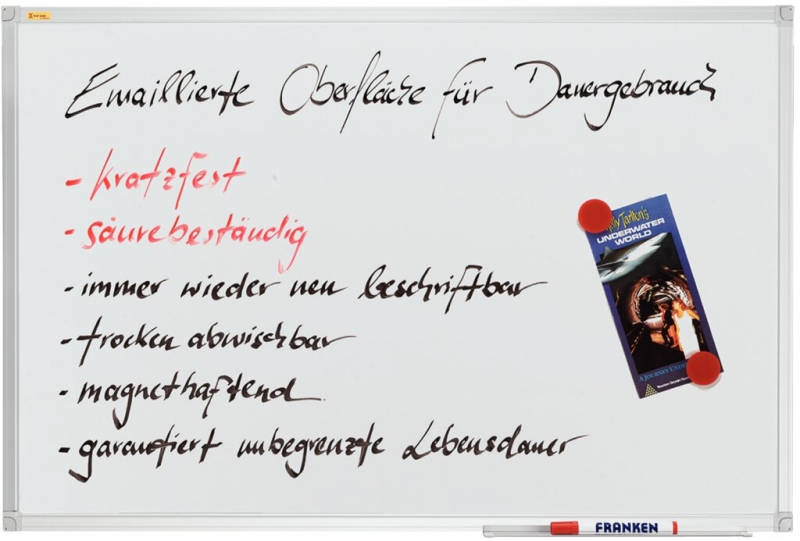 Emaillierte Oberfläche für Dauergebrauch
- kratzfest
- säurebeständig
- immer wieder neu beschriftbar
- trocken abwischbar
- magnethaftend
- garantiert unbegrenzte Lebensdauer
Tarlton's
UNDERWATER
WORLD
A JOURNEY
FRANKEN